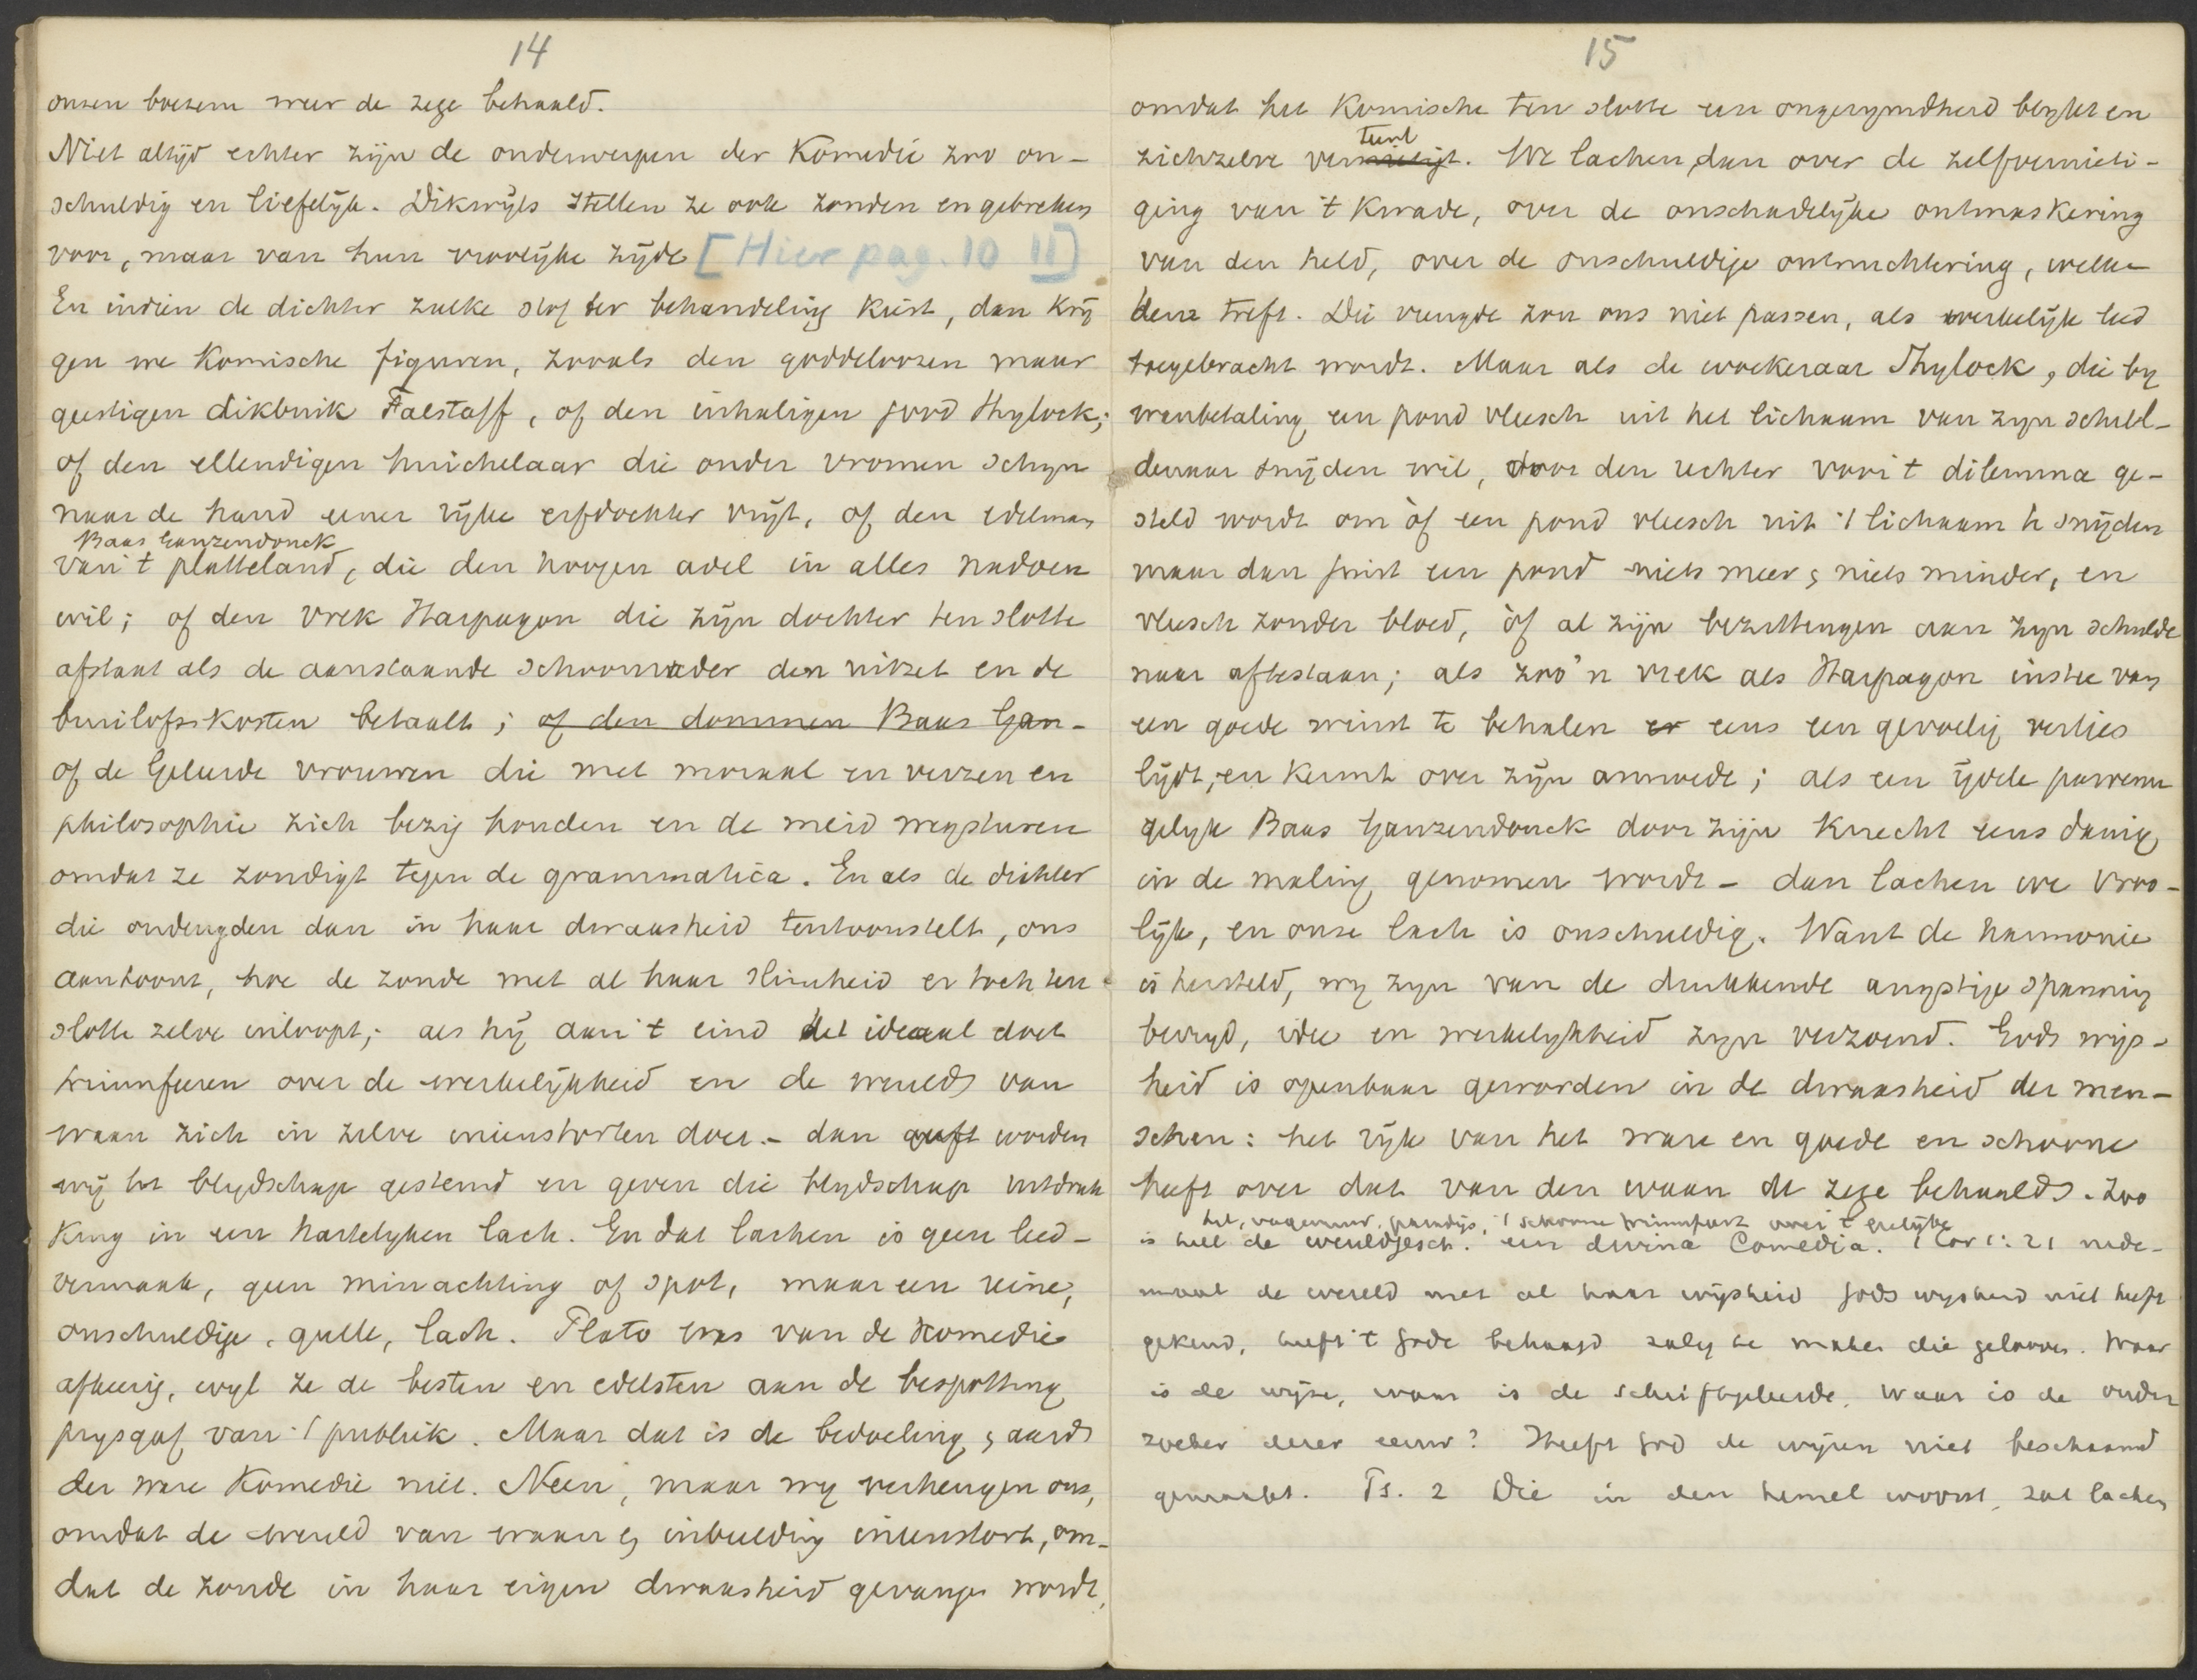 14
onzen boezem weer de zege behaald.
Niet altijd echter zijn de onderwerpen der Komedie zoo on-
schuldig en liefelijk. Dikwijls stellen ze ook zonden en gebreken
voor, maar van hun vroolijke zijde [Hier pag. 10 II]
En indien de dichter zulke stof ter behandeling kiest, dan krij
gen we Komische figuren, zooals den goddeloozen maar
geestigen dikbuik Falstaff, of den inhaligen jood Shylock;
of den ellendigen huichelaar die onder vromen schijn
naar de hand eener rijke erfdochter vrijt, of den edelman
Baas Ganzendonck
van 't platteland, die den hoogen adel in alles nadoen
wil; of den vrek Harpagon die zijn dochter ten slotte
afstaat als de aanstaande schoonvader den uitzet en de
bruilofskosten betaalt; of den dommen Baas Gan-
of de Geleerde vrouwen die met moraal en verzen en
philosophie zich bezig houden en de meid wegsturen
omdat ze zondigt tegen de grammatica. En als de dichter
die ondeugden dan in haar dwaasheid tentoonstelt, ons
aantoont, hoe de zonde met al haar slimheid er toch ten
slotte zelve inloopt; als hij aan 't eind het ideaal doet
triumfeeren over de werkelijkheid en de wereld van
waan zich in zelve ineenstorten doet. - dan worden
wij tot blijdschap gestemd en geven die blijdschap uitdruk
king in een hartelijken lach. En dat lachen is geen leed-
vermaak, geen minachting of spot, maar een reine,
onschuldige, gulle, lach. Plato was van de Komedie
afkeerig, wijl ze de besten en edelsten aan de bespotting
prijsgaf van 't publiek. Maar dat is de bedoeling & aard
der ware Komedie niet. Neen, maar wij verheugen ons,
omdat de wereld van waan & inbeelding ineenstort, om-
dat de zonde in haar eigen dwaasheid gevangen wordt,
15
omdat het Komische ten slotte een ongerijmdheid blijkt en
teert
zichzelve vernietigt. We lachen dan over de zelfvernieti-
ging van 't Kwade, over de onschadelijke ontmaskering
van den held, over de onschuldige ontnuchtering, welke
hem treft. Die vreugde zou ons niet passen, als werkelijk leed
toegebracht wordt. Maar als de woekeraar Shylock, die bij
wanbetaling een pond vleesch uit het lichaam van zijn schul-
denaar snijden wil, door den rechter voor 't dilemma ge-
steld wordt om òf een pond vleesch uit 't lichaam te snijden
maar dan juist een pond niets meer & niets minder, en
vleesch zonder bloed, òf al zijn bezittingen aan zijn schulde
naar aftestaan; als zoo'n vrek als Harpagon instee van
een goede winst te behalen er eens een gevoelig verlies
lijdt, en kermt over zijn armoede; als een ijdele parvenu
gelijk Baas Ganzendonck door zijn knecht eens danig
in de maling genomen wordt - dan lachen we vroo-
lijk, en onze lach is onschuldig. Want de harmonie
is hersteld, wij zijn van de drukkende angstige spanning
bevrijd, idee en werkelijkheid zijn verzoend. Gods wijs-
heid is openbaar geworden in de dwaasheid der men-
schen: het rijk van het ware en goede en schoone
heeft over dat van den waan de zege behaald. Zoo
hel, vagevuur, paradijs, 't schoone triumfeert over 't leelijke
is heel de wereldgesch. een divina Comedia. 1 Cor 1: 21 nade-
maal de wereld met al haar wijsheid Gods wijsheid niet heeft
gekend, heeft 't Gode behaagd zalig te maken die gelooven. Waar
is de wijze, waar is de schriftgeleerde, waar is de onder
zoeker dezer eeuw? Heeft God de wijzen niet beschaamd
gemaakt. Ps. 2 Die in den hemel woont, zal lachen